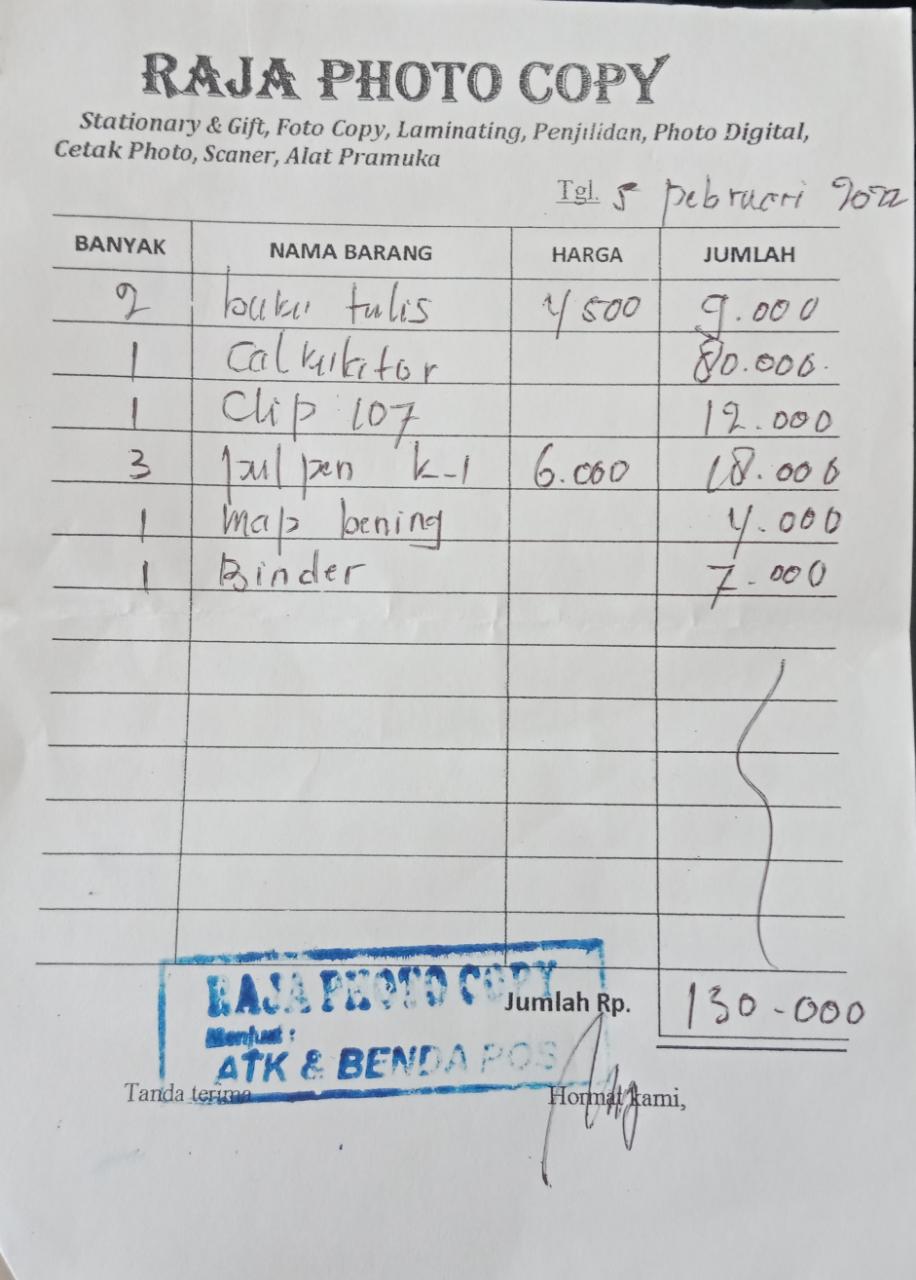 RAJA PHOTO COPY
Stationary & Gift, Foto Copy, Laminating, Penjilidan, Photo Digital,
Cetak Photo, Scaner, Alat Pramuka
Tgl. 5 pebruari 2022
BANYAK NAMA BARANG HARGA JUMLAH
2 buku tulis 4 500 9.000
1 Calkulator 80.000.
1 Clip 107 12.000
3 pulpen k-1 6.000 18.000
1 map bening 4.000
1 Binder 7.000
RAJA PHOTO COPY
Jumlah Rp. 130.000
Menjual :
ATK & BENDA POS
Tanda terima Hormat kami,